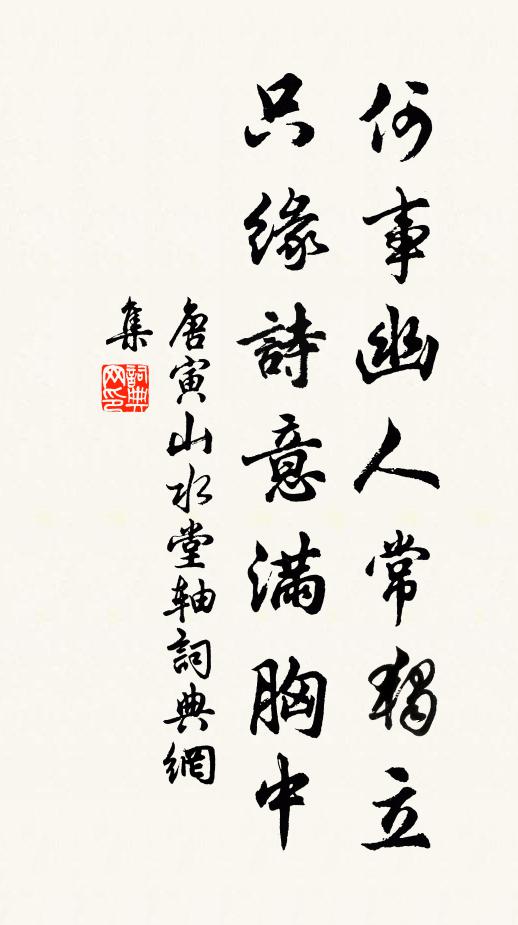 何事幽人常獨立
只緣詩意滿胸中
唐寅山水堂轴詞典網
集
詞典
网印